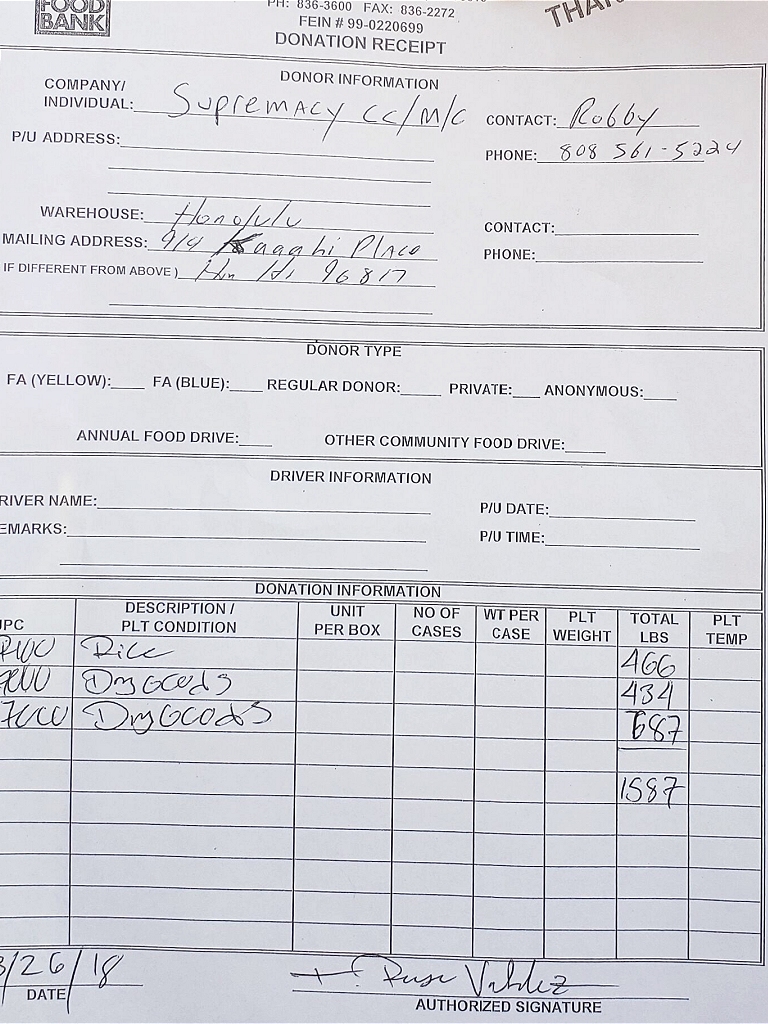 FOOD
BANK
PH: 836-3600 FAX: 836-2272
FEIN # 99-0220699
DONATION RECEIPT
DONOR INFORMATION
COMPANY/
INDIVIDUAL: Supremacy CC/M/C CONTACT: Robby
P/U ADDRESS: PHONE: 808 561-5224
WAREHOUSE: Honolulu CONTACT:
MAILING ADDRESS: 914 Place PHONE:
IF DIFFERENT FROM ABOVE) Hon Hi 96817
DONOR TYPE
FA (YELLOW): FA (BLUE): REGULAR DONOR: PRIVATE: ANONYMOUS:
ANNUAL FOOD DRIVE: OTHER COMMUNITY FOOD DRIVE:
DRIVER INFORMATION
RIVER NAME: P/U DATE:
EMARKS: P/U TIME:
DONATION INFORMATION
UPC DESCRIPTION / PLT CONDITION UNIT PER BOX NO OF CASES WT PER CASE PLT WEIGHT TOTAL LBS PLT TEMP
Rice 466
Dry Goods 434
Dry Goods 687
1587
3/26/18 Valdez
DATE AUTHORIZED SIGNATURE